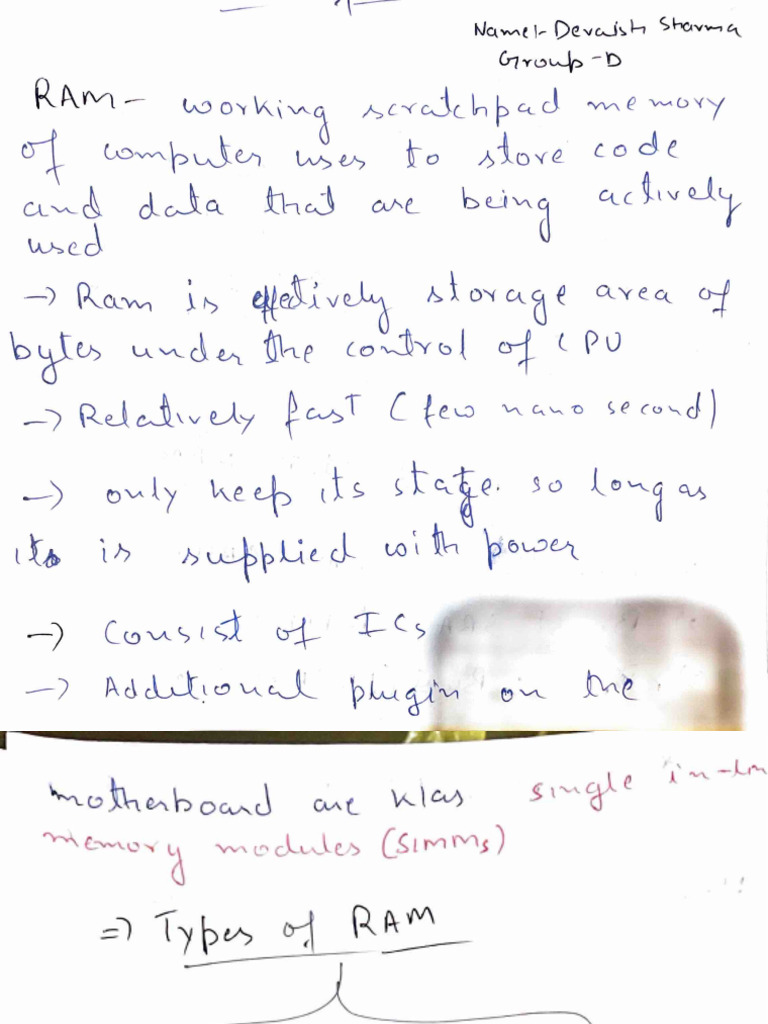 Name:- Devaish Sharma
Group-D
RAM- working scratchpad memory
of computer uses to store code
and data that are being actively
used
→ Ram is effectively storage area of
bytes under the control of CPU
→ Relatively fast (few nano second)
→ only keep its state so long as
its is supplied with power
→ Consist of ICs
→ Additional plugin on the
motherboard are k/as single in-
memory modules (SIMMs)
⇒ Types of RAM